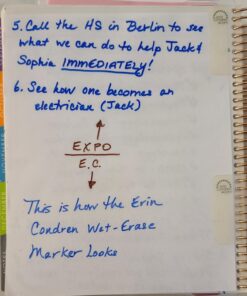 5. Call the HS in Berlin to see
what we can do to help Jack &
Sophia IMMEDIATELY!
6. See how one becomes an
electrician (Jack)
EXPO
E.C.
This is how the Erin
Condren Wet-Erase
Marker Looks